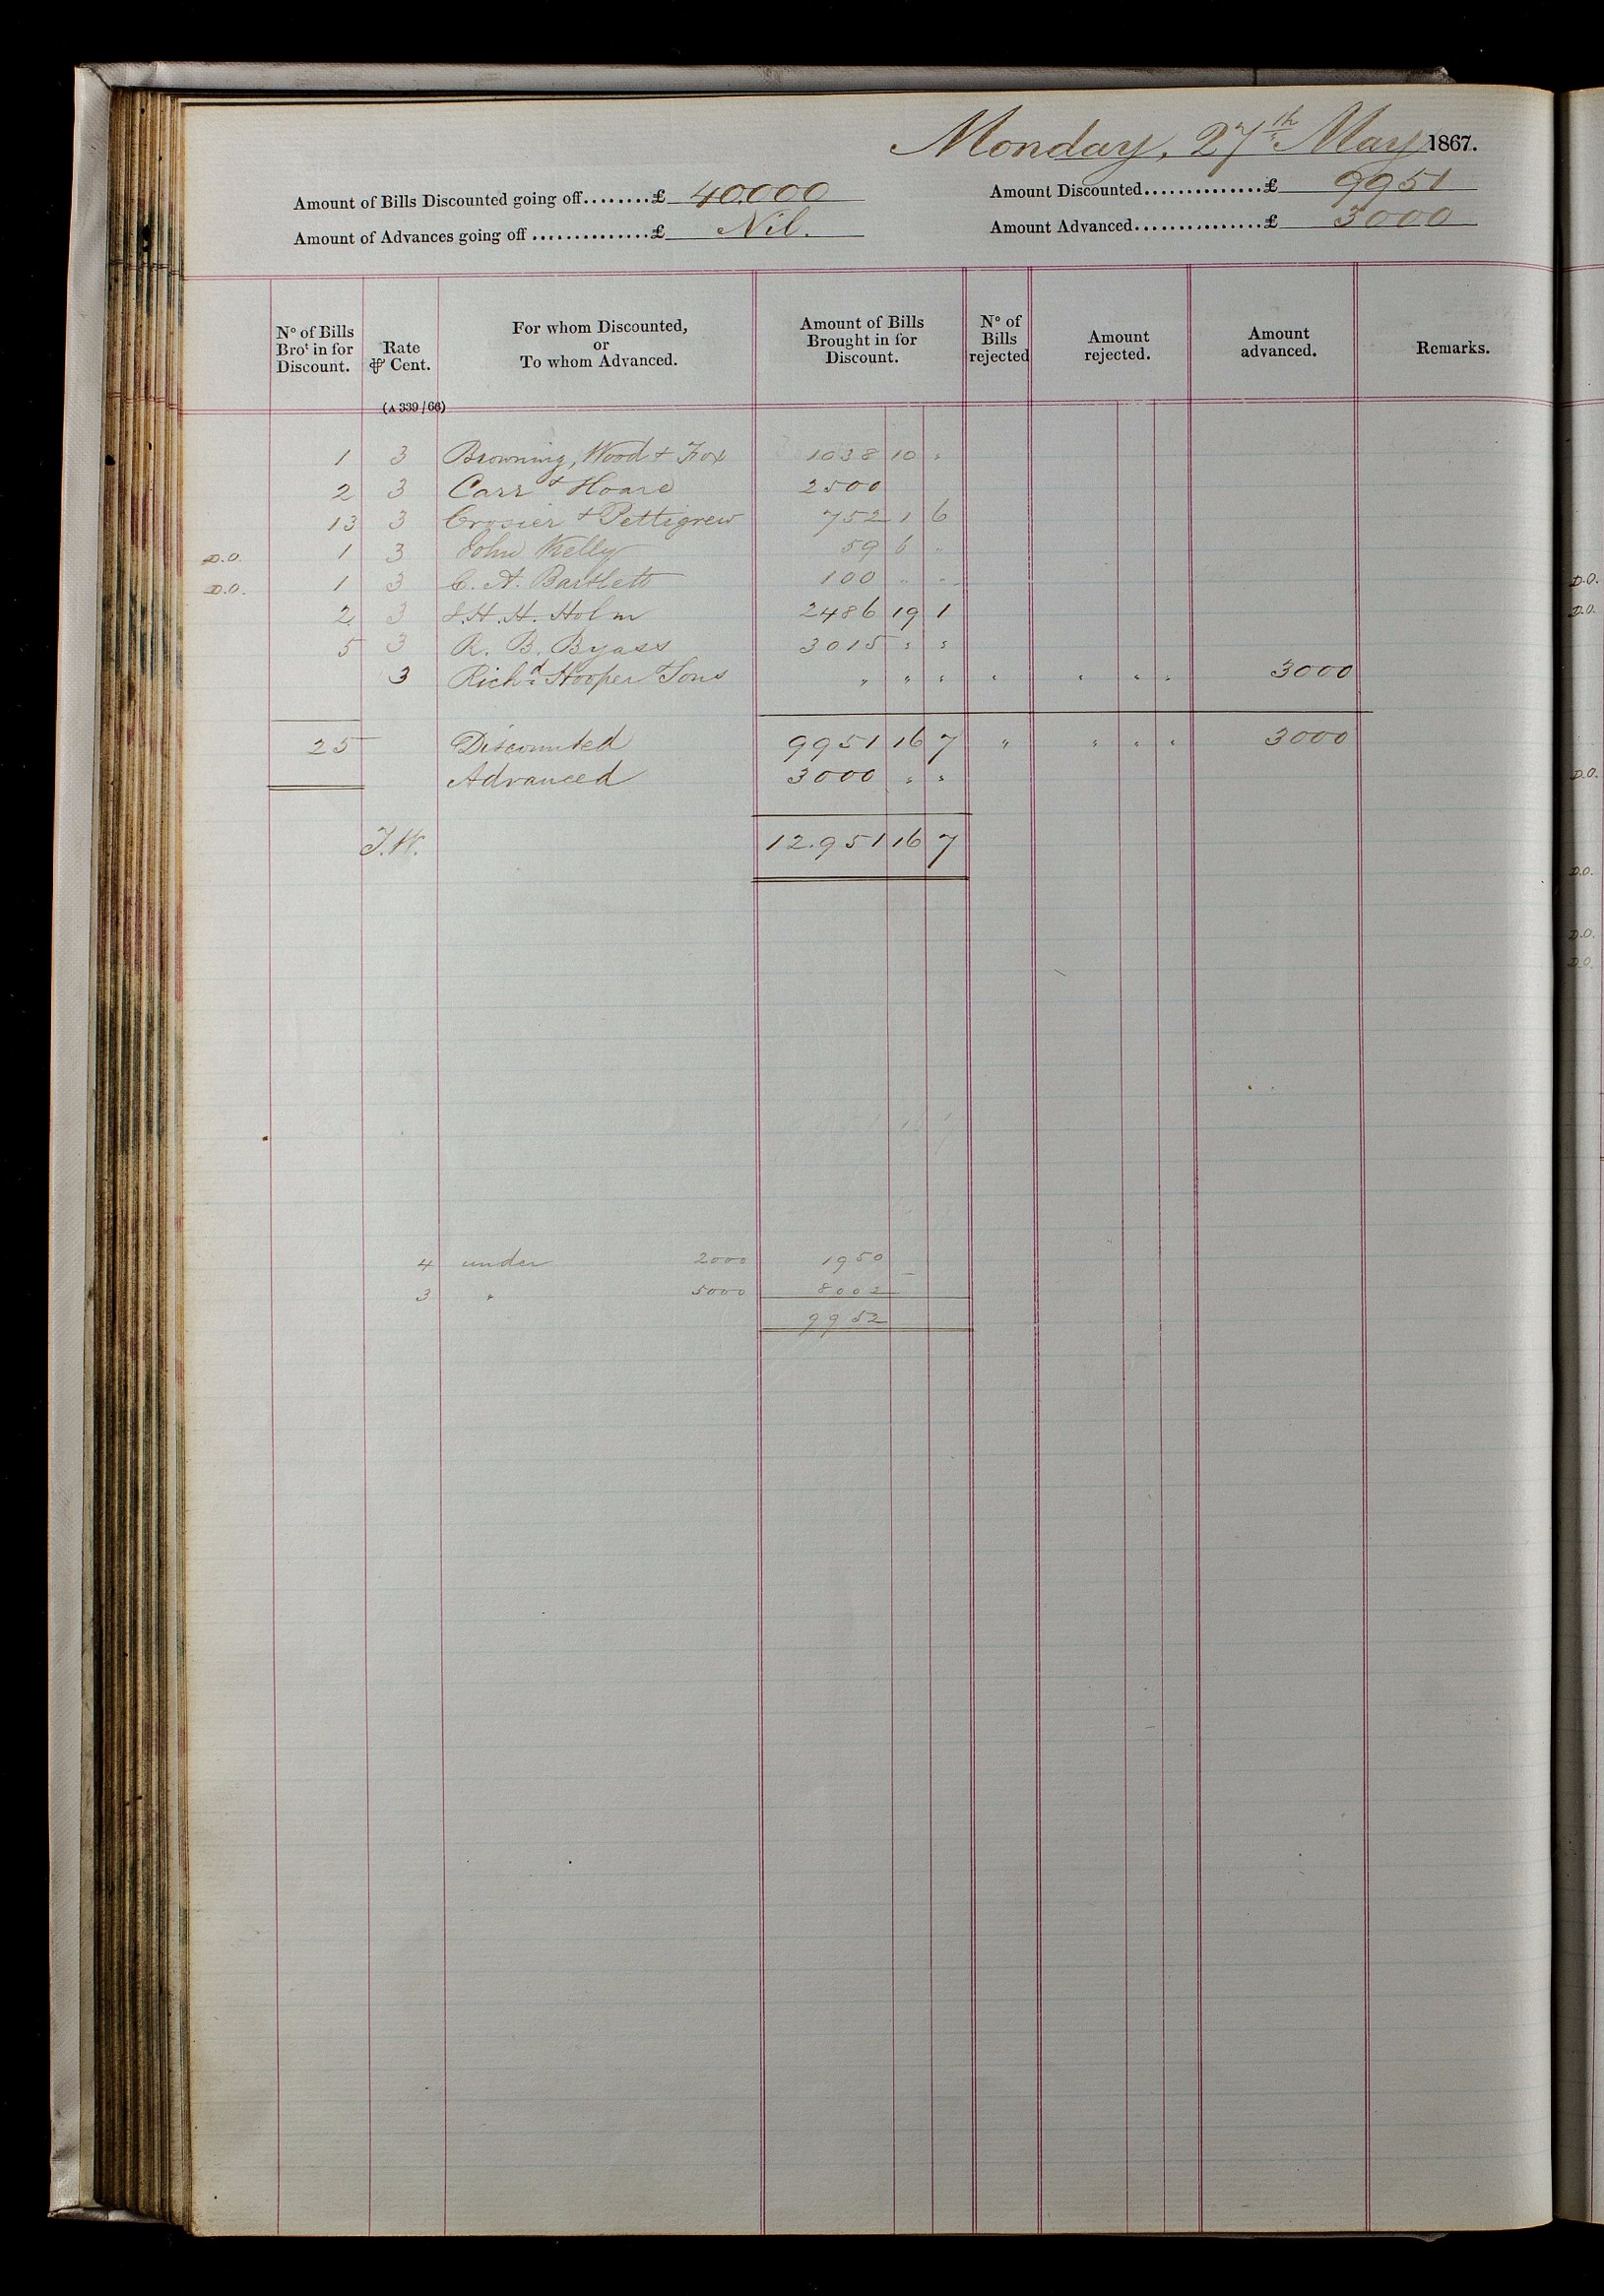 Monday, 27th May 1867.
Amount of Bills Discounted going off........£ 40.000 Amount Discounted..............£ 9951
Amount of Advances going off ..............£ Nil. Amount Advanced...............£ 3000
No of Bills Brot in for Discount. Rate ⅌ Cent. For whom Discounted, or To whom Advanced. Amount of Bills Brought in for Discount. No of Bills rejected Amount rejected. Amount advanced. Remarks.
(A 339/66)
1 3 Browning, Wood & Fox 1038 10 "
2 3 Carr & Hoare 2500
13 3 Crosier & Pettigrew 752 1 6
D.O. 1 3 John Kelly 59 6 "
D.O. 1 3 C. A. Bartlett 100 " "
2 3 H. H. Holm 2486 19 1
5 3 R. B. Byass 3015 " "
3 Richd Hooper & Sons " " " " " " " 3000
25 Discounted 9951 16 7 " " " " 3000
Advanced 3000 " "
J.W. 12.951 16 7
4 under 2000 1950
3 " 5000 8002
9952
D.O.
D.O.
D.O.
D.O.
D.O.
D.O.